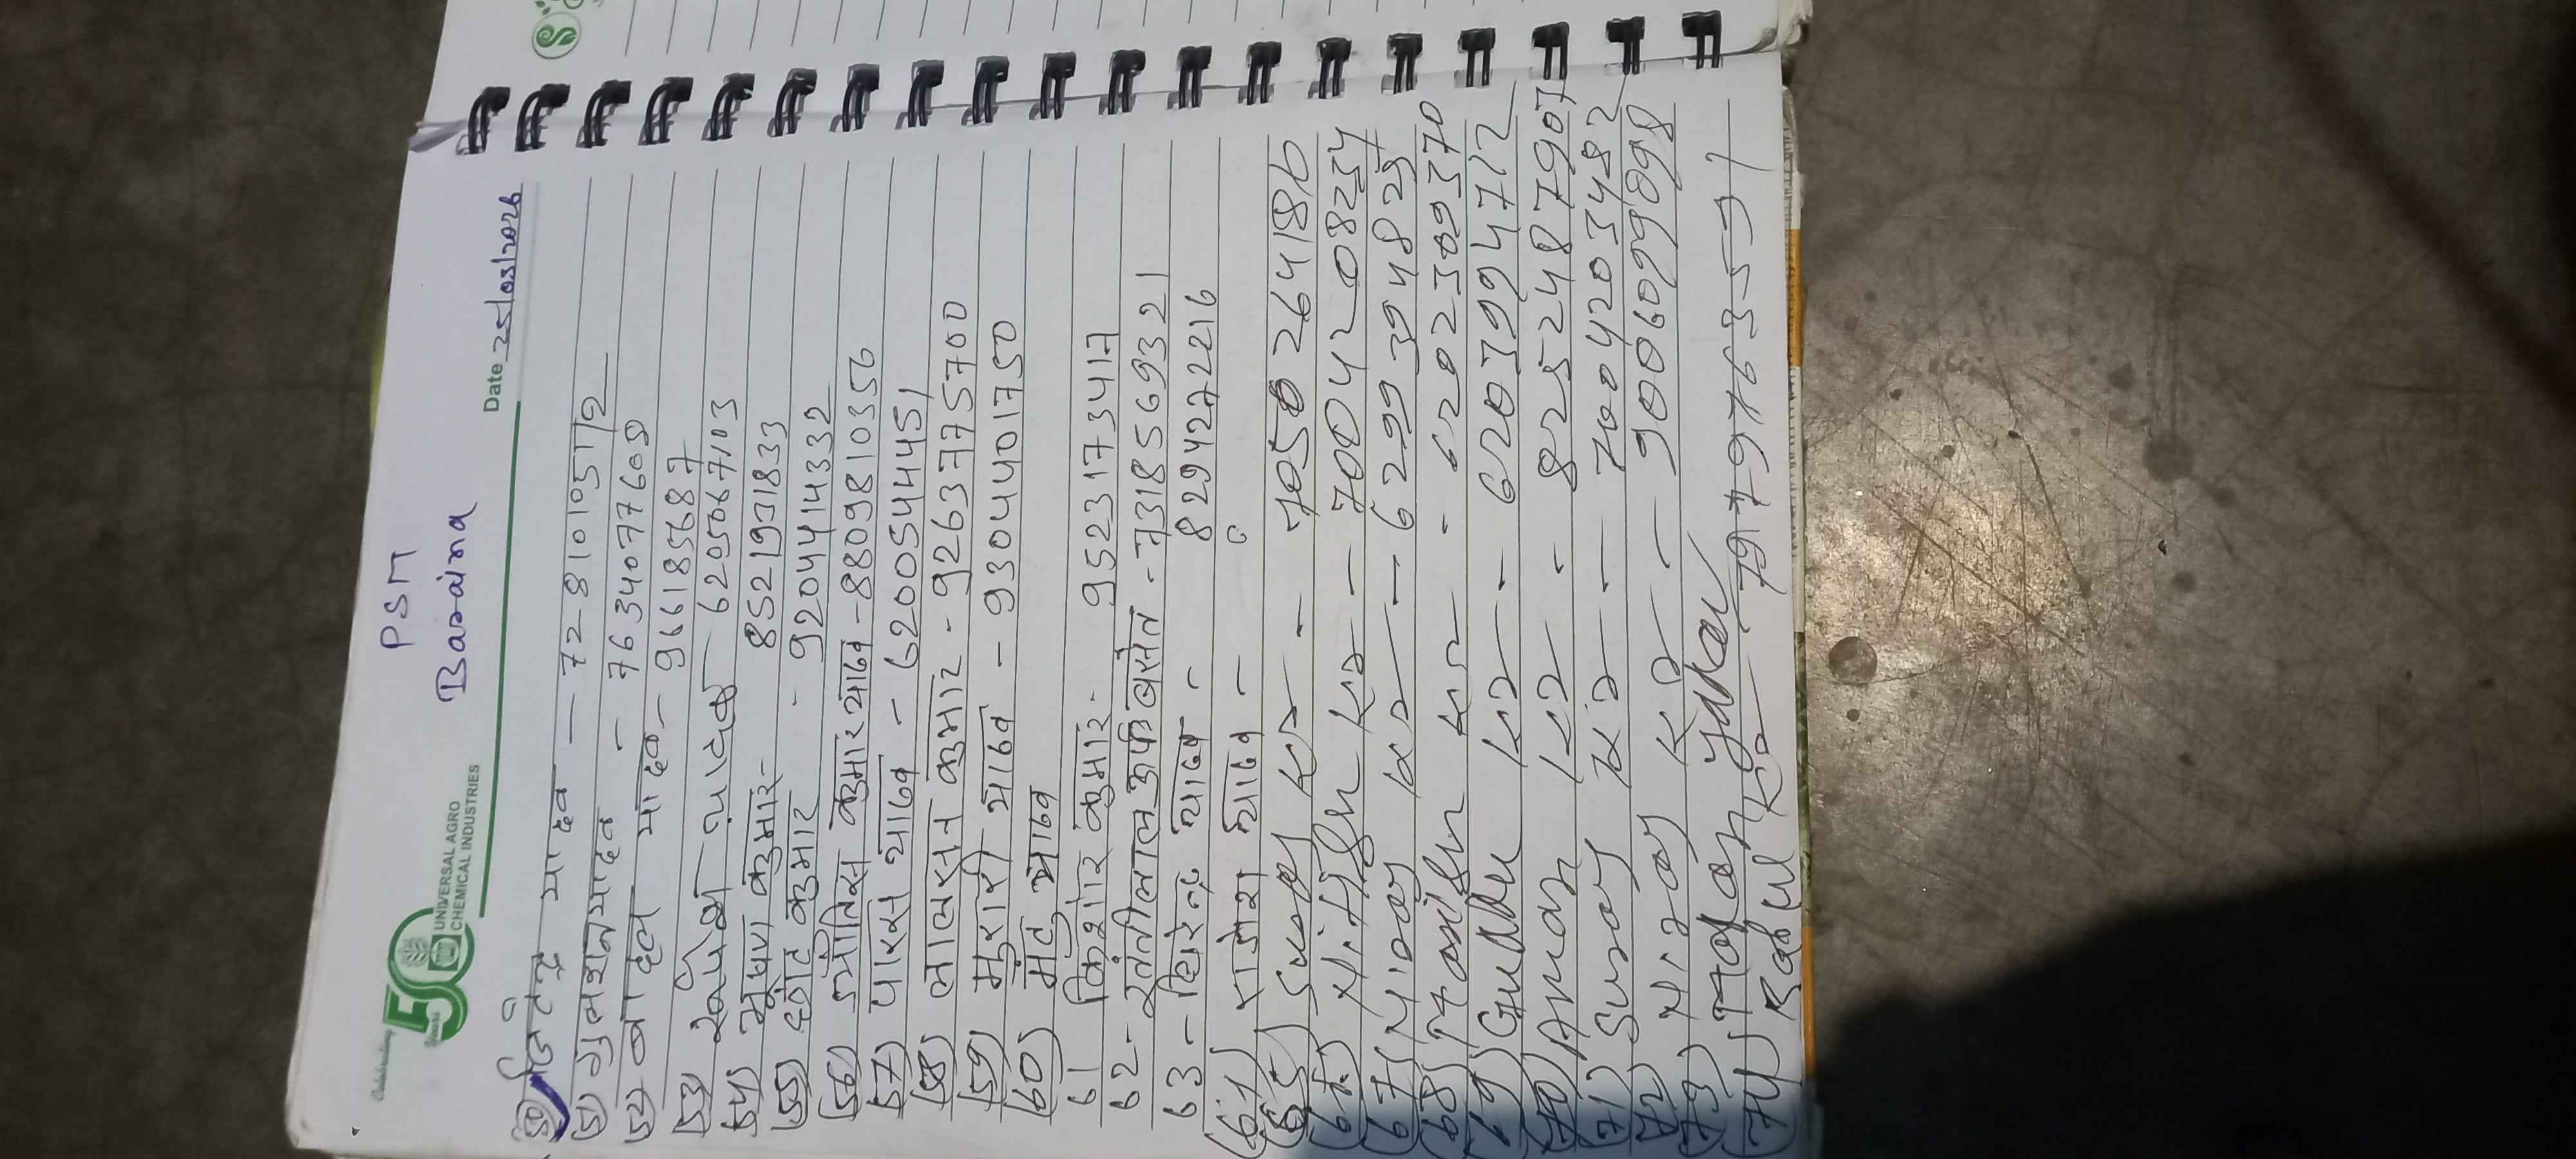 PSM
Baraina
Celebrating
50
UNIVERSAL AGRO
CHEMICAL INDUSTRIES
Date 25/03/2026
50) जितेन्द्र यादव — 7281010595172
51) गुलशन यादव - 7634077609
52) बादल यादव - 9661185687
53) 6205067103
54) भूषण कुमार - 8521931833
55) छोटे कुमार - 9204414332
56) ज्योतिस कुमार यादव - 8809810356
57) पारस यादव - 6200544451
58) लालसन कुमार - 9263775700
59) मुरारी यादव - 9304401750
60) मंटु यादव
61 किशोर कुमार - 9523173417
62 - रतीलाल उर्फ बसंत - 7318569321
63 - धिरेन्द्र यादव - 8294272216
(64) राजेश यादव -
(65) Suraj kr - 7050264186
(66) Nitish kr - 7004208234
(67) Niraj kr - 6299394829
(68) kr - 6202309370
(69) Guddu kr - 6203994712
(70) Aman kr - 8252487907
(71) Suraj kr - 7004203482
(72) Niraj kr - 9006099898
(73) Madan Yadav
(74) Rahul kr - 7979763551